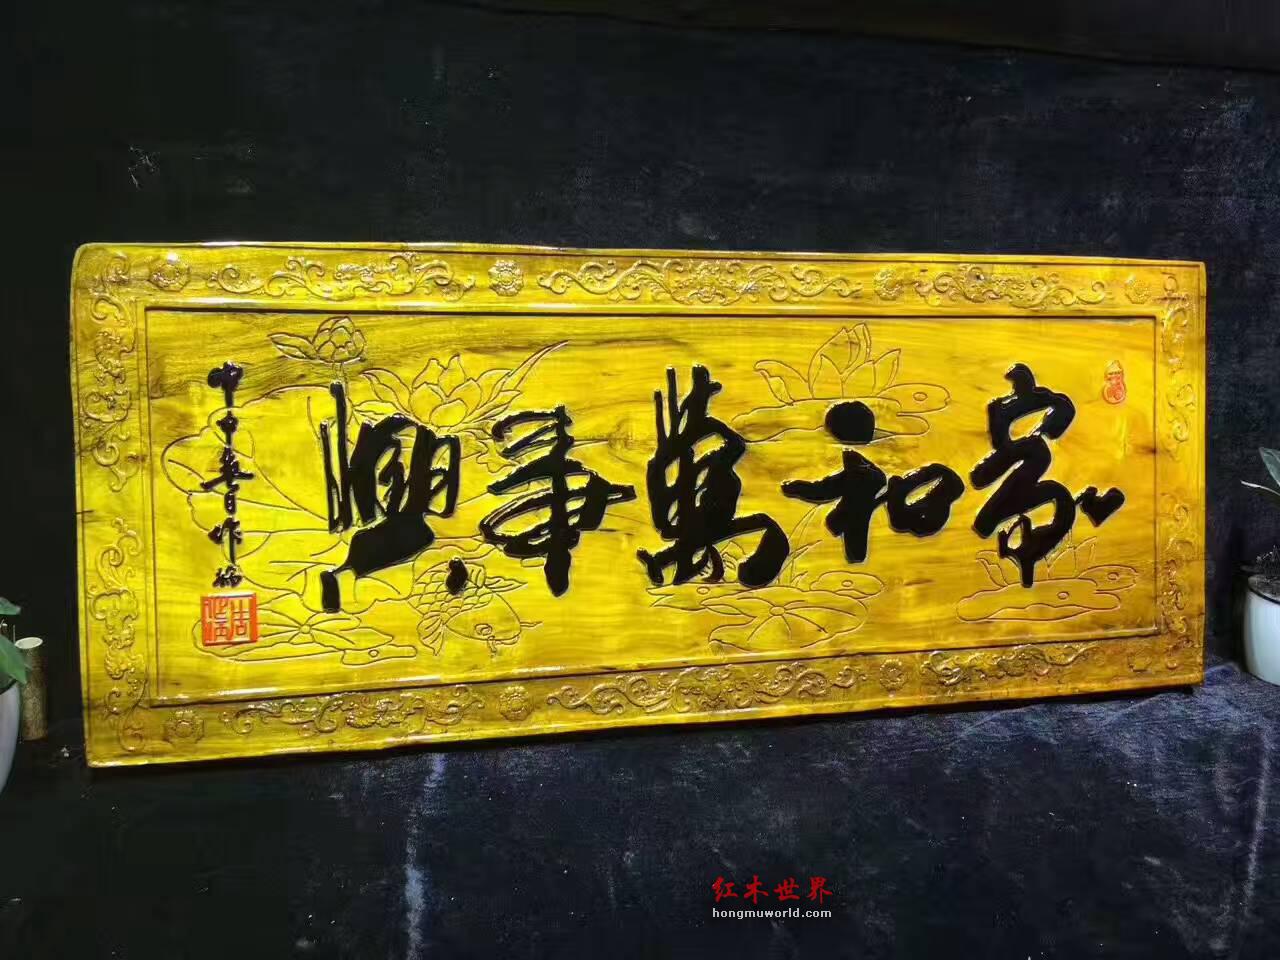 家和萬事興
甲申春月作
红木世界
hongmuworld.com